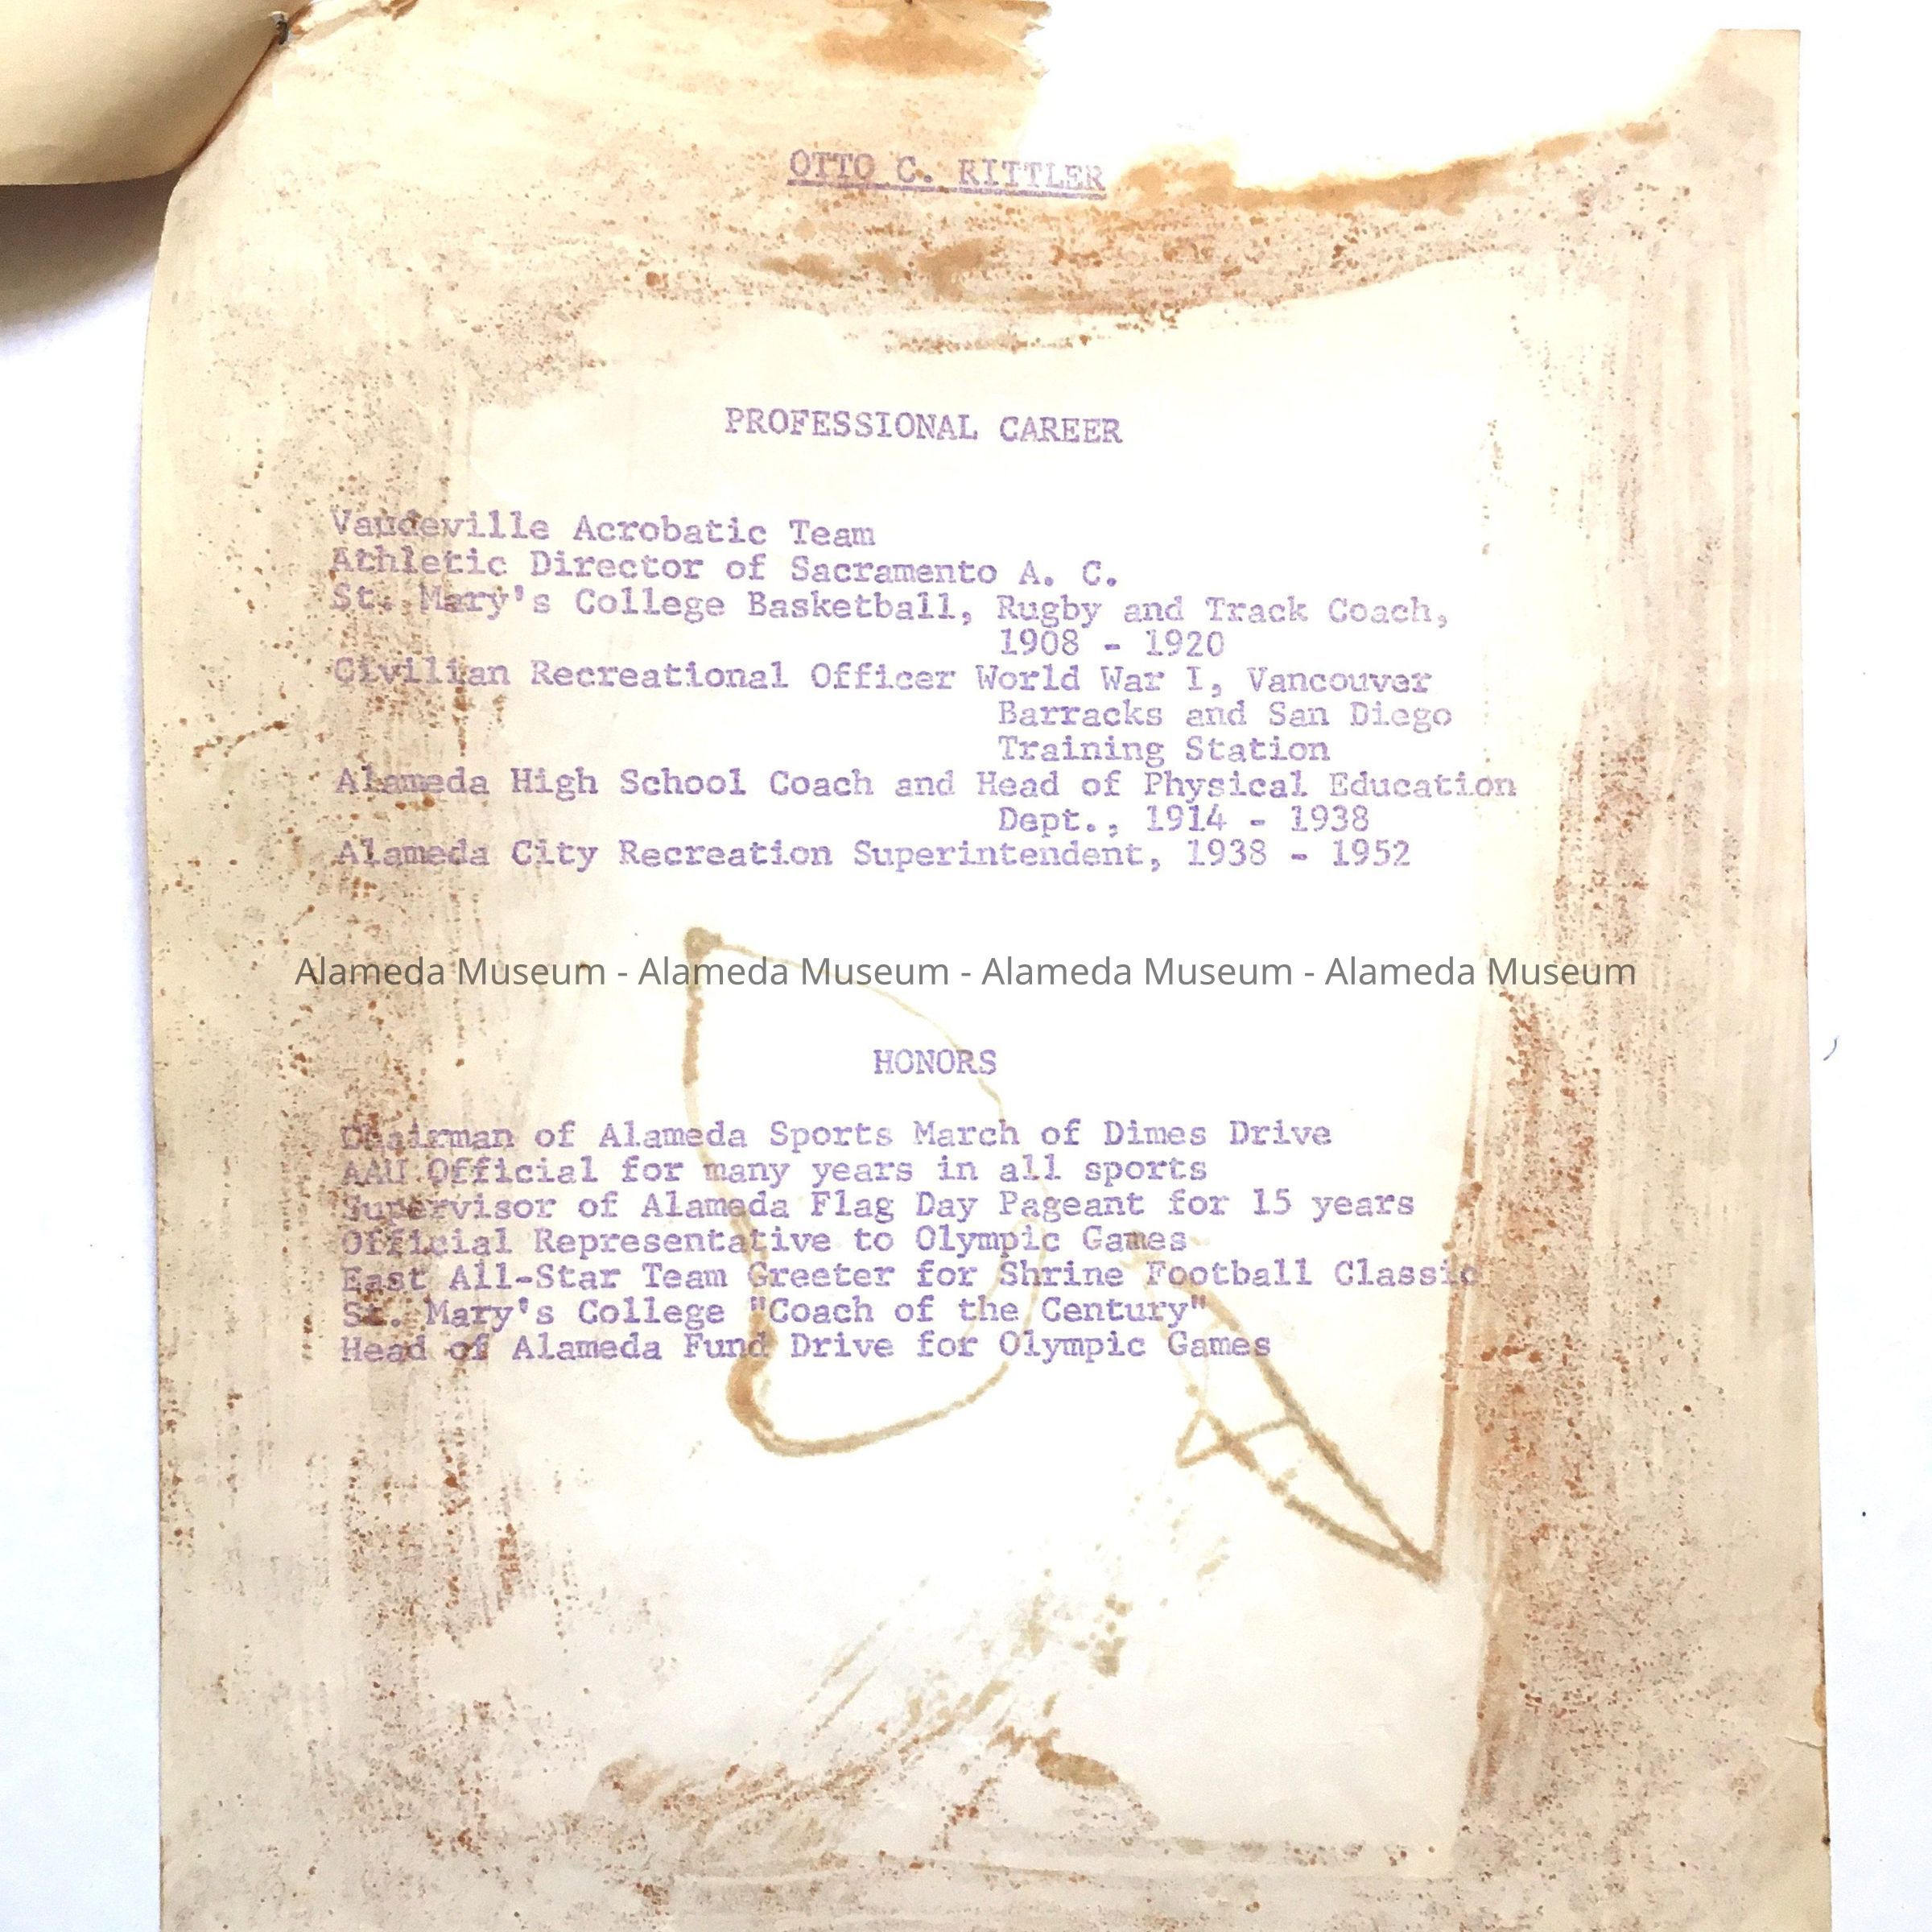 OTTO C. RITTLER
PROFESSIONAL CAREER
Vaudeville Acrobatic Team
Athletic Director of Sacramento A. C.
St. Mary's College Basketball, Rugby and Track Coach,
1908 - 1920
Civilian Recreational Officer World War I, Vancouver
Barracks and San Diego
Training Station
Alameda High School Coach and Head of Physical Education
Dept., 1914 - 1938
Alameda City Recreation Superintendent, 1938 - 1952
Alameda Museum - Alameda Museum - Alameda Museum - Alameda Museum
HONORS
Chairman of Alameda Sports March of Dimes Drive
AAU Official for many years in all sports
Supervisor of Alameda Flag Day Pageant for 15 years
Official Representative to Olympic Games
East All-Star Team Greeter for Shrine Football Classic
St. Mary's College "Coach of the Century"
Head of Alameda Fund Drive for Olympic Games